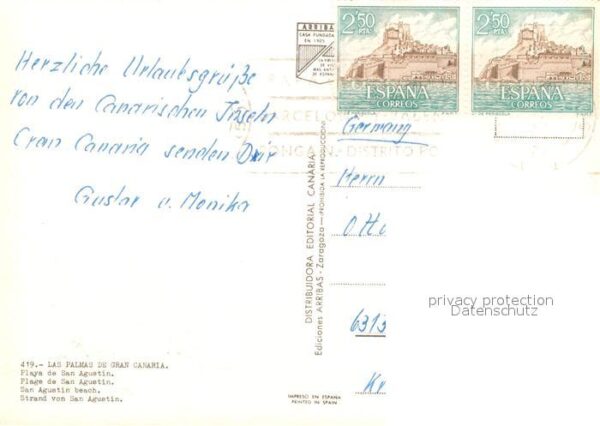 Herzliche Urlaubsgrüße
von den Canarischen Inseln
Gran Canaria senden Dir
Gustav u. Monika
419.- LAS PALMAS DE GRAN CANARIA.
Playa de San Agustín.
Plage de San Agustin.
San Agustin beach.
Strand von San Agustin.
ARRIBAS
CASA FUNDADA
EN 1905
DISTRIBUIDORA EDITORIAL CANARIA
Ediciones ARRIBAS - Zaragoza - PROHIBIDA LA REPRODUCCION
IMPRESO EN ESPAÑA
PRINTED IN SPAIN
2'50 PTAS
ESPAÑA
CORREOS
2'50 PTAS
ESPAÑA
CORREOS
BARCELONA
DISTRITO PO
Germany
Herrn
Otto
privacy protection
Datenschutz